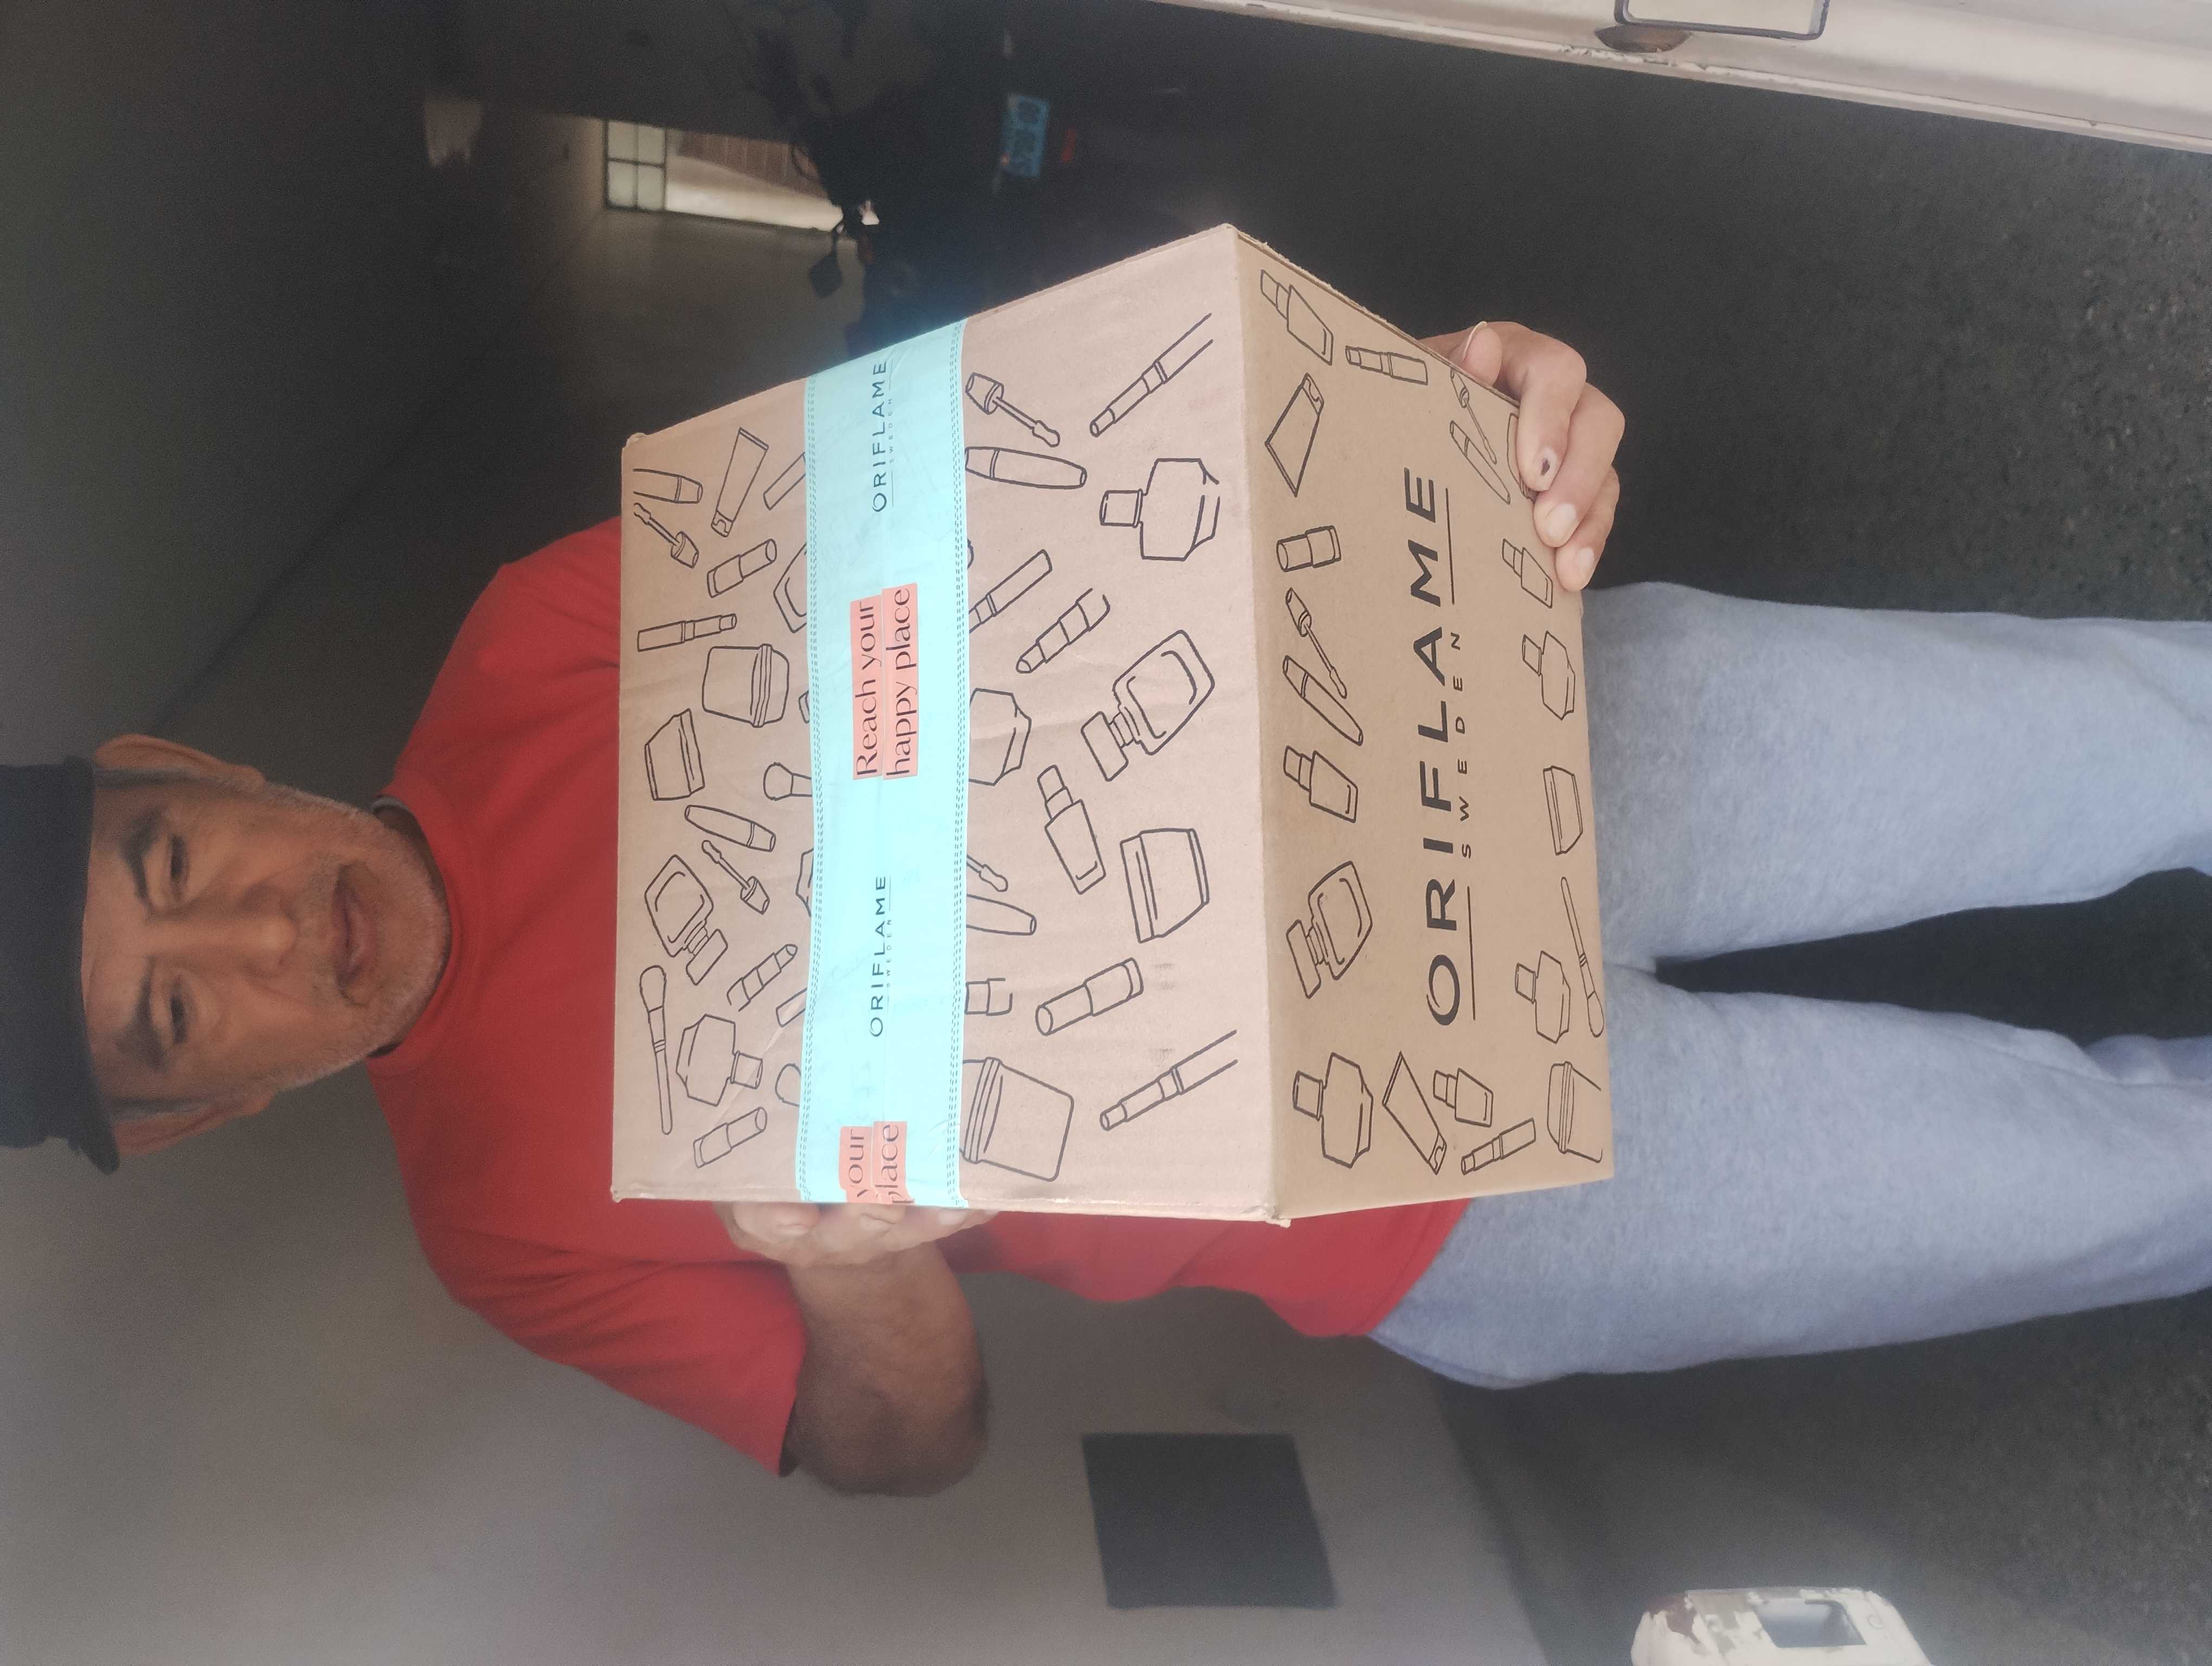 ORIFLAME
SWEDEN
Reach your
happy place
ORIFLAME
SWEDEN
your
place
ORIFLAME
SWEDEN